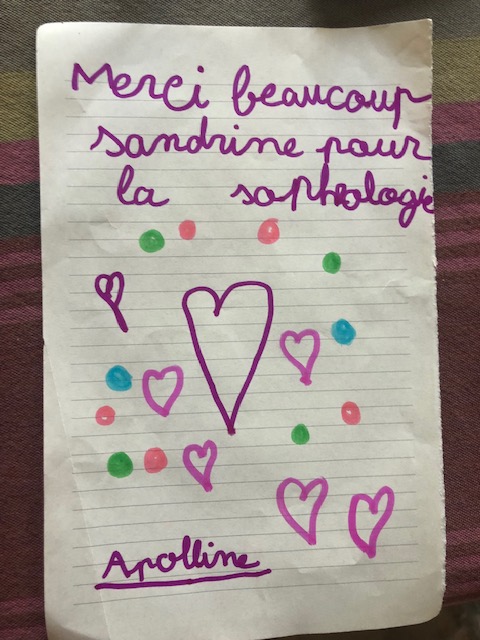 Merci beaucoup
sandrine pour
la sophrologie
Apolline